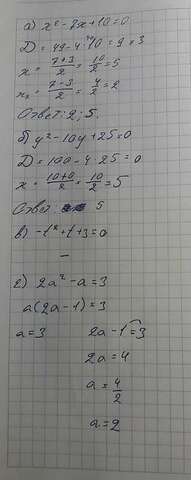 а) x² - 7x + 10 = 0
D = 49 - 4·10 = 9 = 3
x = (7+3)/2 = 10/2 = 5
x₂ = (7-3)/2 = 4/2 = 2
Ответ: 2; 5.
б) y² - 10y + 25 = 0
D = 100 - 4·25 = 0
x = (10+0)/2 = 10/2 = 5
Ответ 5
в) -t² + t + 3 = 0
—
г) 2a² - a = 3
a(2a - 1) = 3
a = 3 2a - 1 = 3
2a = 4
a = 4/2
a = 2